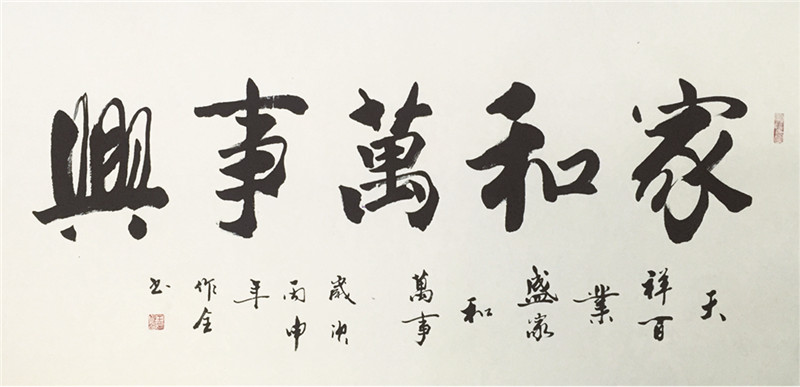 家和萬事興
天
祥百
業
盛家
和
萬事
歲次
丙申
年
作全
书